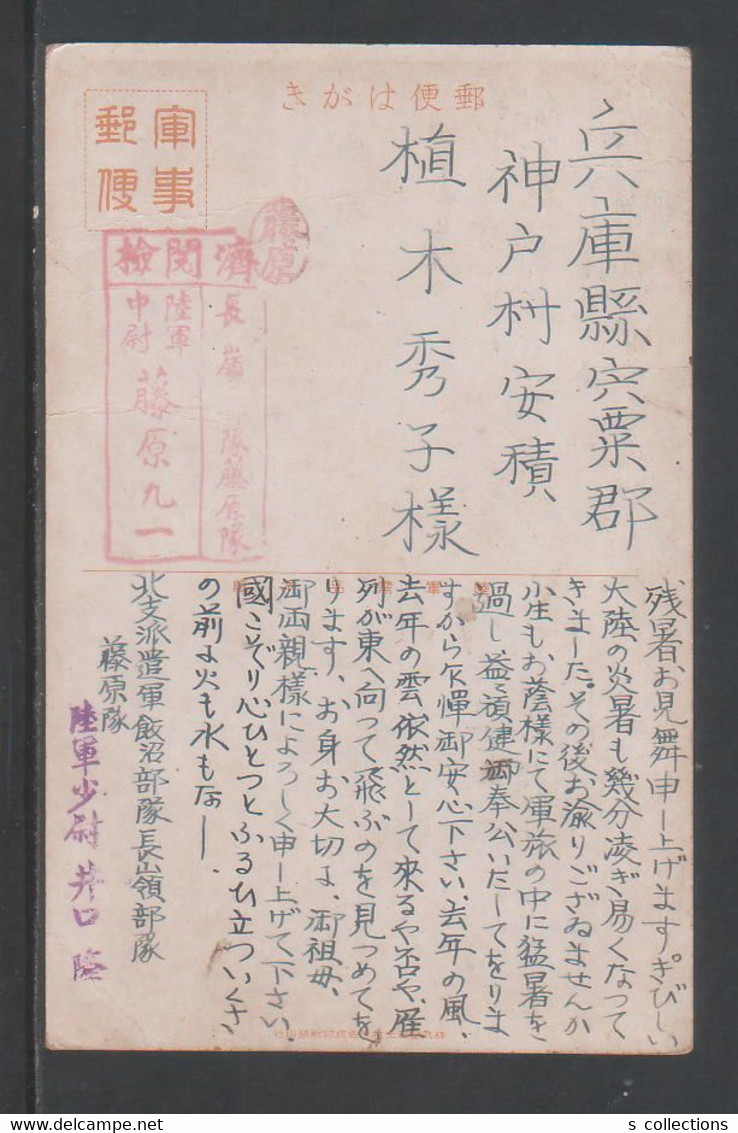 郵便はがき
軍事
郵便
藤原
検閲濟
長嶺部隊藤原隊
陸軍
中尉
藤原九一
兵庫縣宍粟郡
神戸村安積
植木秀子様
残暑お見舞申し上げます。きびしい
大陸の炎暑も幾分凌ぎ易くなって
きました。その後お渝りございませんか
小生もお蔭様にて軍旅の中に猛暑を
過し益〻頑健御奉公いたしてをりま
すから乍憚御安心下さい、去年の風、
去年の雲、依然として來るや否や、雁
列が東へ向って飛ぶのを見つめてを
ります、お身お大切に、御祖母、
御両親様によろしく申し上げて下さい、
國こぞり心ひとつとふるひ立ついくさ
の前に火も水もなし、
北支派遣軍飯沼部隊長嶺部隊
藤原隊
陸軍少尉 井口 陸
s collections